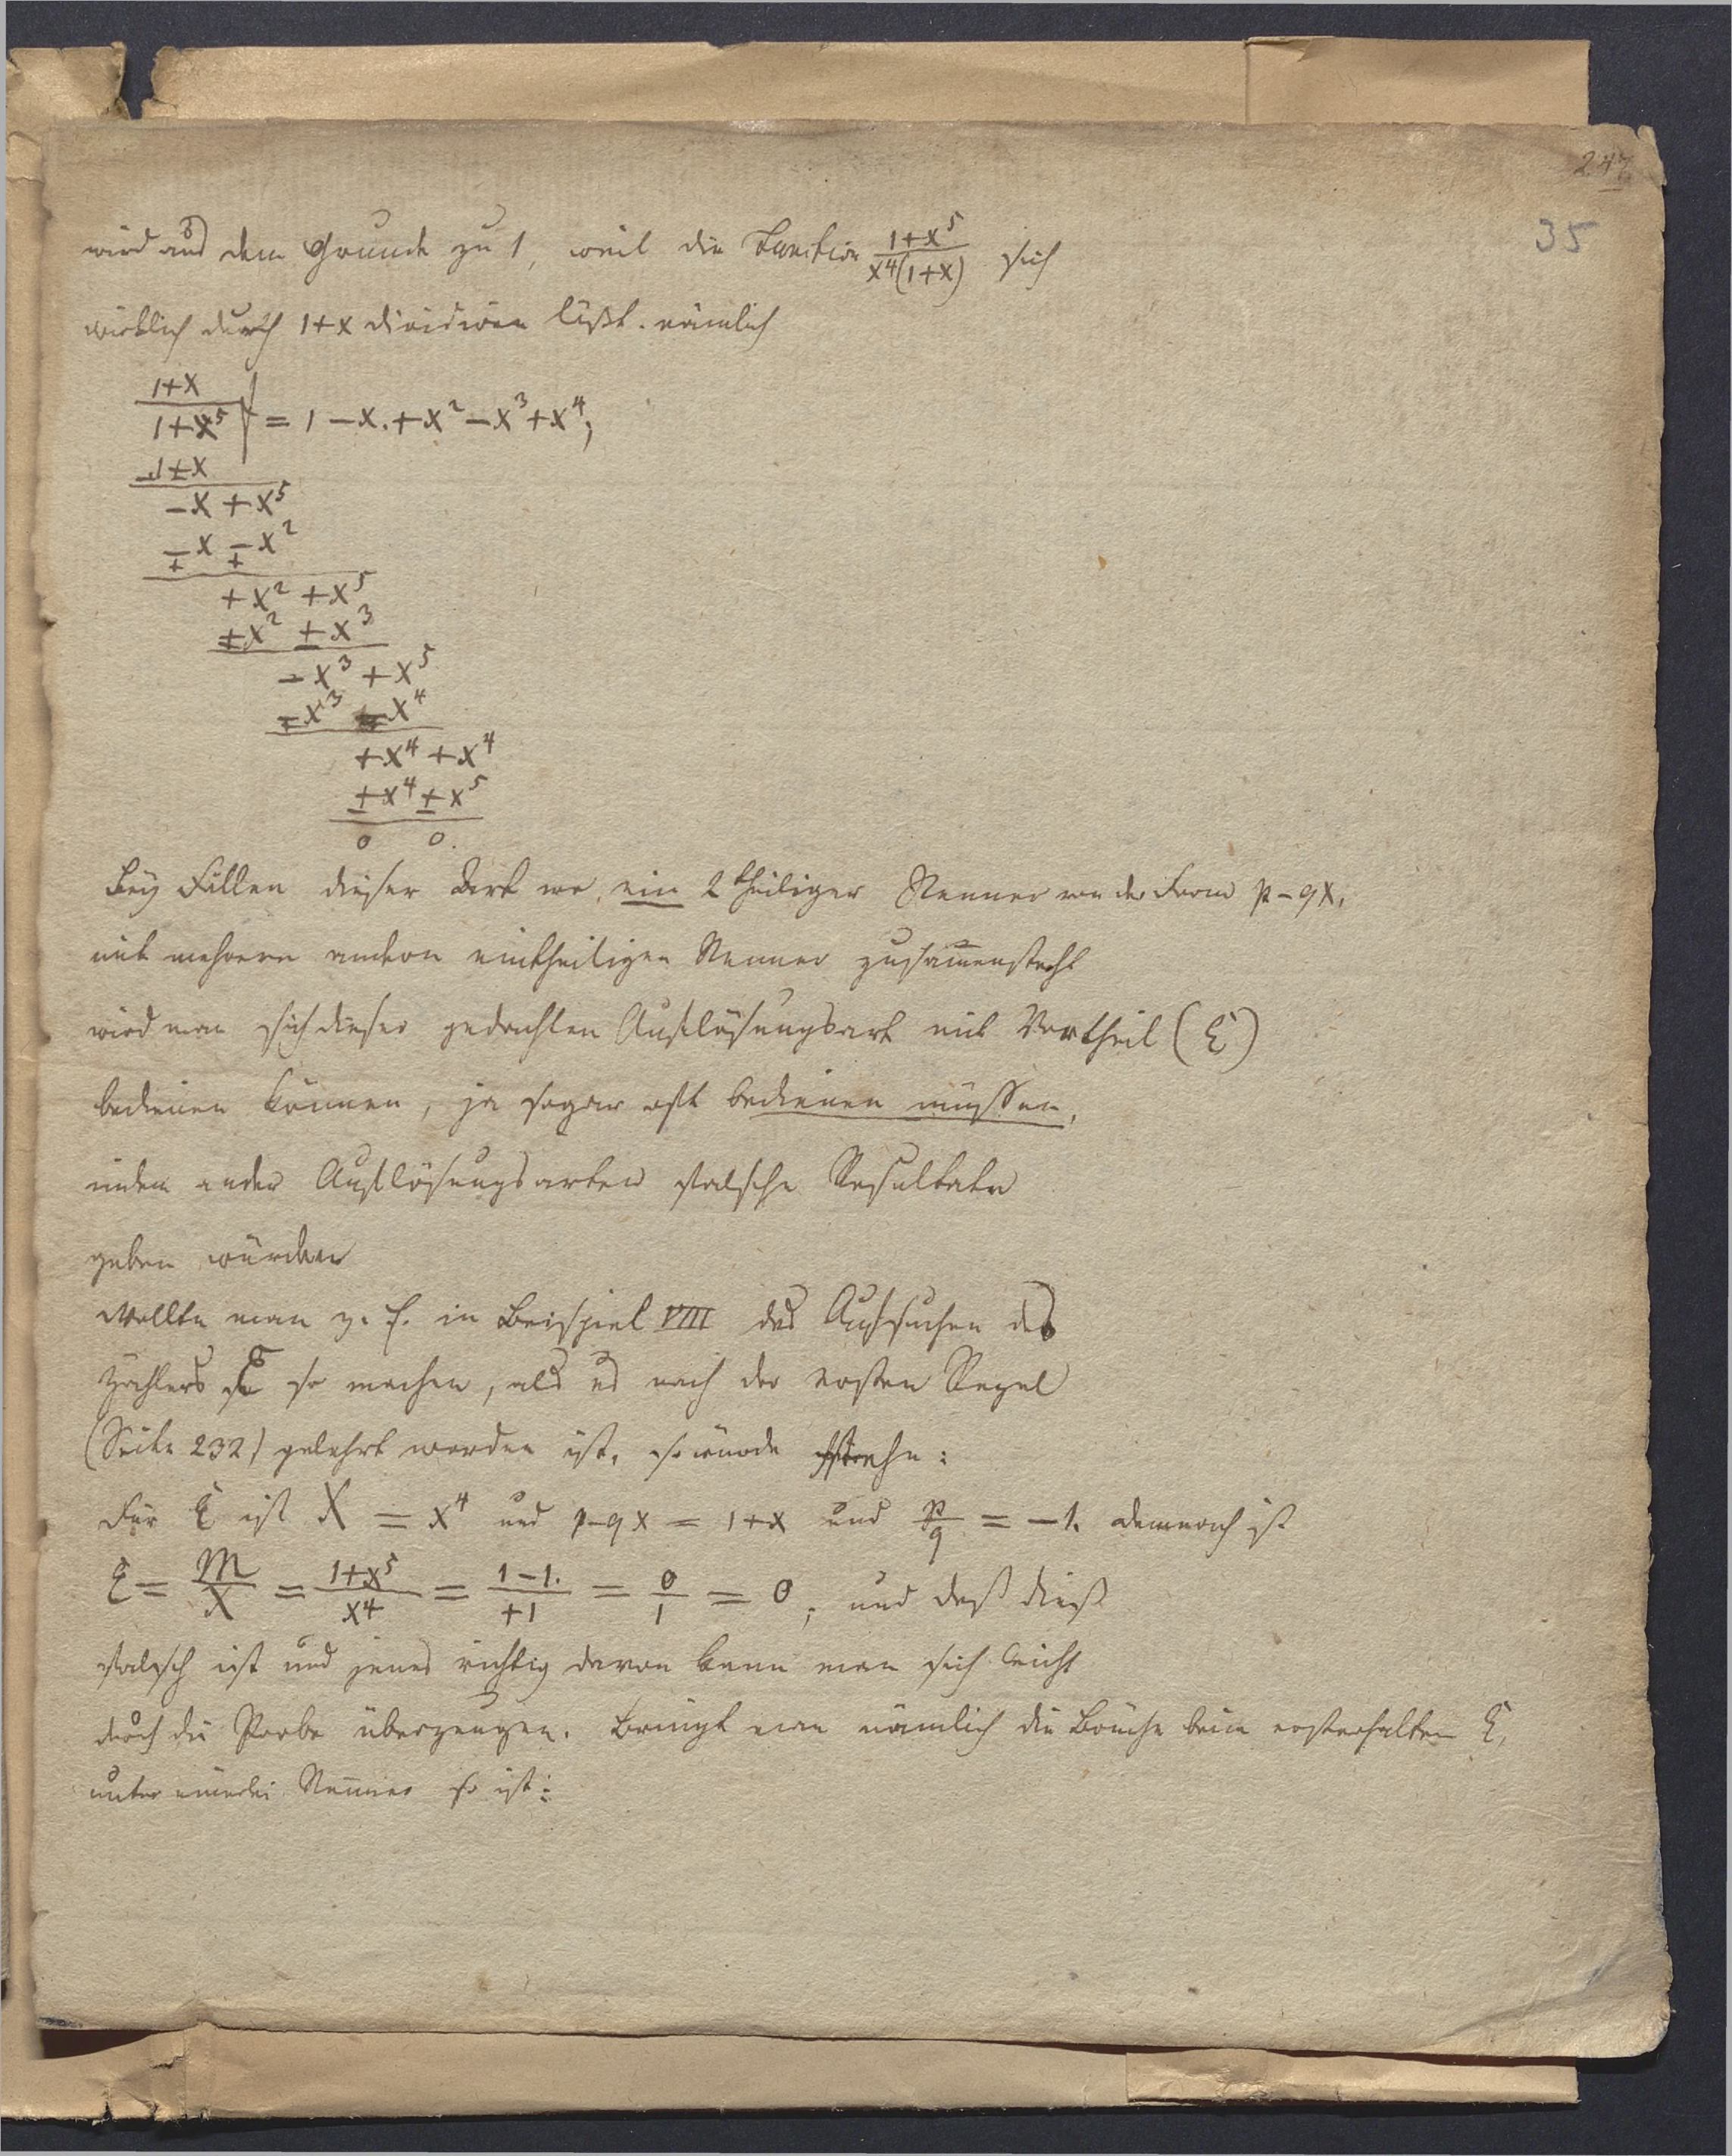 247
35
wird aus dem Grunde zu 1, weil die Function \frac{1+x^5}{x^4(1+x)} sich
wirklich durch 1+x dividiren läßt. nämlich
1+x
1+x^5 = 1 - x. + x^2 - x^3 + x^4;
-1±x
-x + x^5
∓x ∓x^2
+x^2 + x^5
±x^2 ±x^3
-x^3 + x^5
∓x^3 ∓x^4
+x^4 + x^4
±x^4 ± x^5
0 0.
Bey Fällen dieser Art wo ein 2theiliger Nenner von der Form p-qx,
mit mehrern andern eintheiligen Nenner zusammensteht
wird man sich dieser gedachten Auflösungsart mit Vortheil
bedienen können, ja sogar oft bedienen müssen,
indem andre Auflösungsarten falsche Resultate
geben würden
Wollte man z. E. in Beispiel VIII das Aufsuchen des
Zählers so machen, als es nach der ersten Regel
(Seite 232) gelehrt worden ist, so würde stehn:
Für E ist X = x^4 und p-qx = 1+x und \frac{p}{q} = -1. demnach ist
E = \frac{M}{X} = \frac{1+x^5}{x^4} = \frac{1-1.}{+1} = \frac{0}{1} = 0, und daß dieß
falsch ist und jenes richtig davon kann man sich leicht
durch die Probe überzeugen. Bringt man nämlich die Brüche beim ersterhalten E,
unter einerlei Nenner so ist: